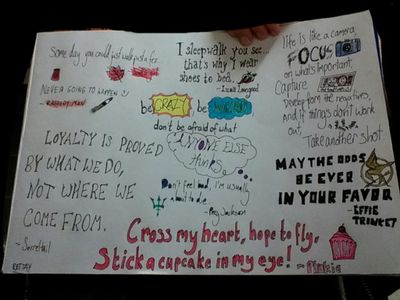 Some day you could just walk past a fez.
NEVER GOING TO HAPPEN
- RAGGEDY MAN
I sleepwalk you see...
that's why I wear
shoes to bed.
- Luna Lovegood
life is like a camera,
FOCUS
on what's important,
Capture
Develop from the negatives,
and if things don't work
out,
Take another shot.
be CRAZY, be WEIRD
don't be afraid of what
ANYONE ELSE
thinks.
LOYALTY IS PROVED
BY WHAT WE DO,
NOT WHERE WE
COME FROM.
Don't feel bad, I'm usually
about to die.
- Percy Jackson
MAY THE ODDS
BE EVER
IN YOUR FAVOR
- EFFIE
TRINKET
Cross my heart, hope to fly,
Stick a cupcake in my eye!
- Pinkie